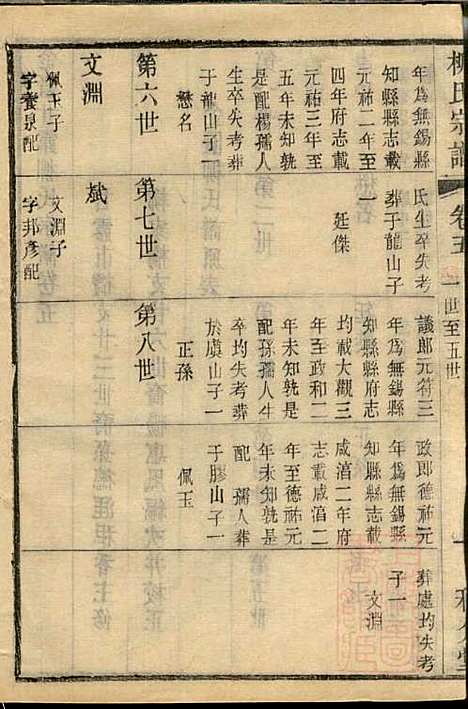 柳氏宗譜 卷五 一世至五世
年爲無錫縣
知縣縣志載
元祐二年至
四年府志載
元祐三年年
五年未知孰
是配楊孺人
生卒失考葬
于龍山子一
懋名
氏生卒失考
葬于龍山子
一
廷傑
議郎元符三
年爲無錫縣
知縣縣府志
均載大觀三
年至政和二
年未知孰是
配孫孺人生
卒均失考葬
於虞山子一
正孫
政郎德祐元
年爲無錫縣
知縣縣志載
咸淳二年府
志載咸淳二
年至德祐元
年未知孰是
配 孺人葬
于膠山子一
佩玉
葬處均失考
子一
文淵
第六世
第七世
第八世
文淵
佩玉子
字養泉配
斌
文淵子
字邦彥配